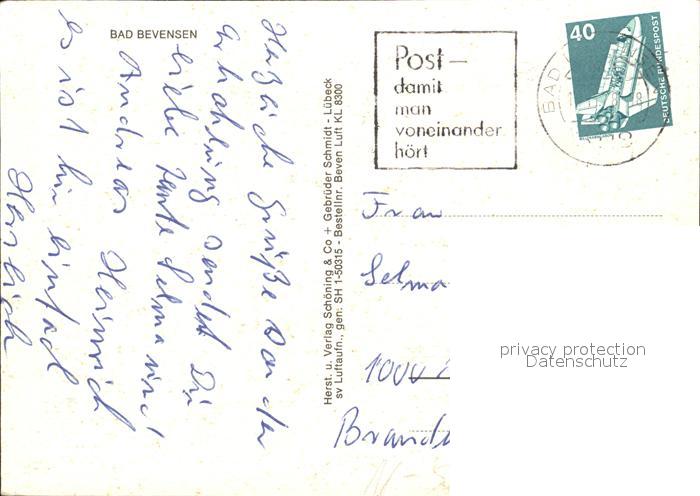 BAD BEVENSEN
Herzliche Grüße von der
Erholung sendet Dir
liebe Tante Selma und
Andreas Heinrich
es ist hier einfach
Herrlich
Herst. u. Verlag Schöning & Co + Gebrüder Schmidt - Lübeck
sv Luftaufn., gen: SH 1-50315 - Bestellnr. Beven Luft KL 8300
Post –
damit
man
voneinander
hört
BAD
40
DEUTSCHE BUNDESPOST
Frau
Selma
1000
Brande
privacy protection
Datenschutz